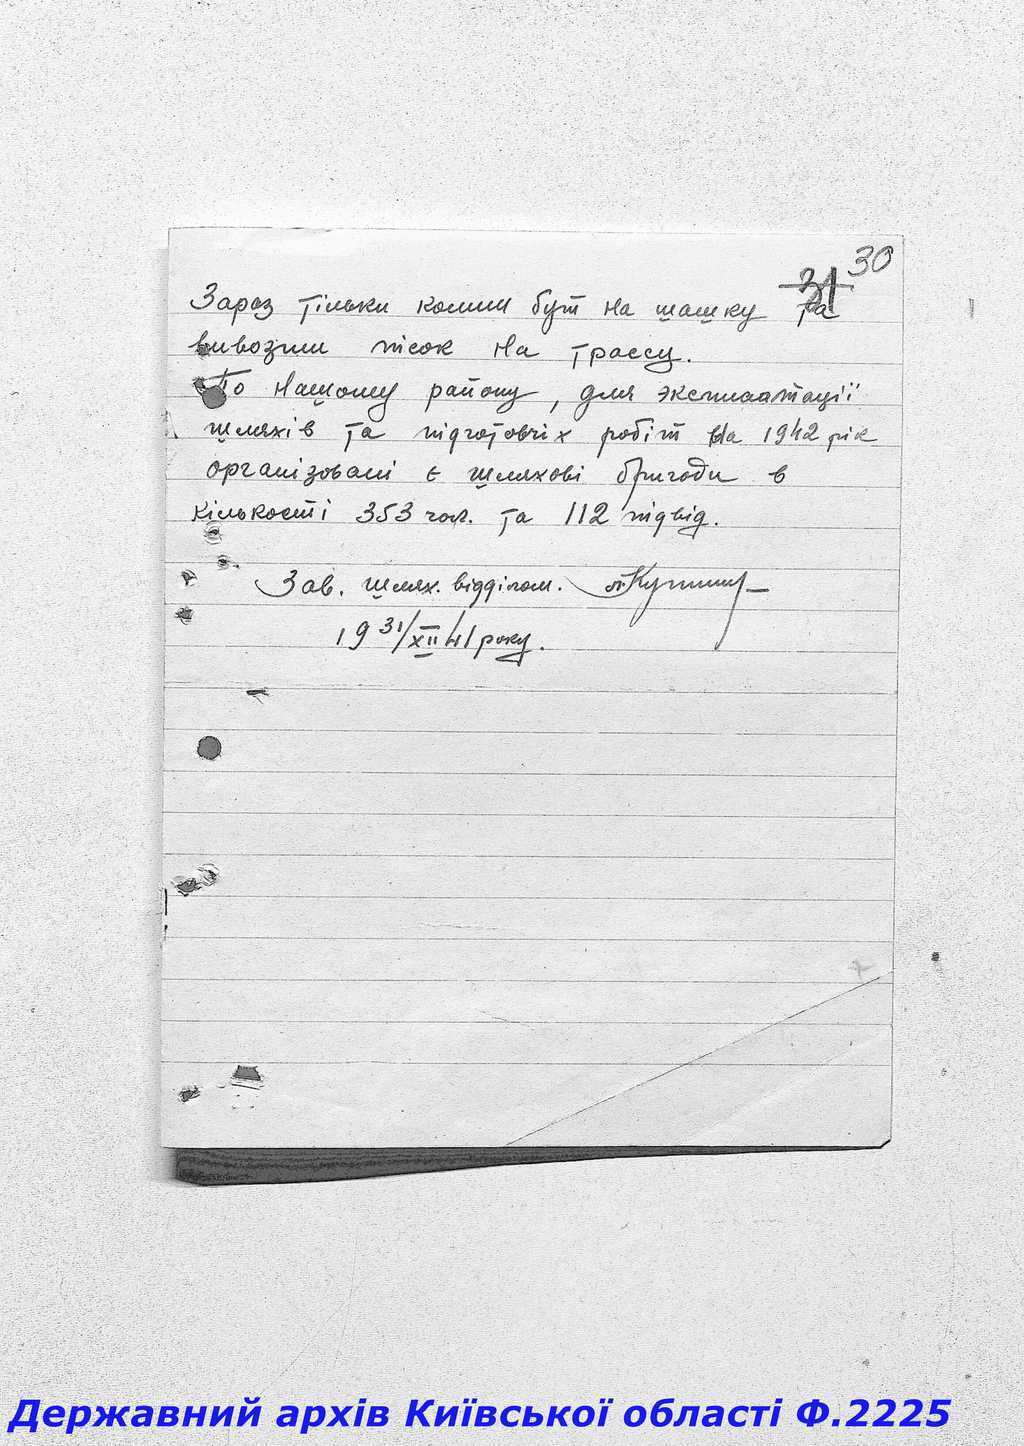 30
31
Зараз тільки колим бут на шашку та
вивозим пісок на трассу.
По нашому району, для эксплаатації
шляхів та підготовчіх робіт на 1942 рік
організовані є шляхові бригади в
кількості 353 чол. та 112 підвід.
Зав. шлях. відділом.
19 31/XII 41 року.
Державний архів Київської області Ф.2225